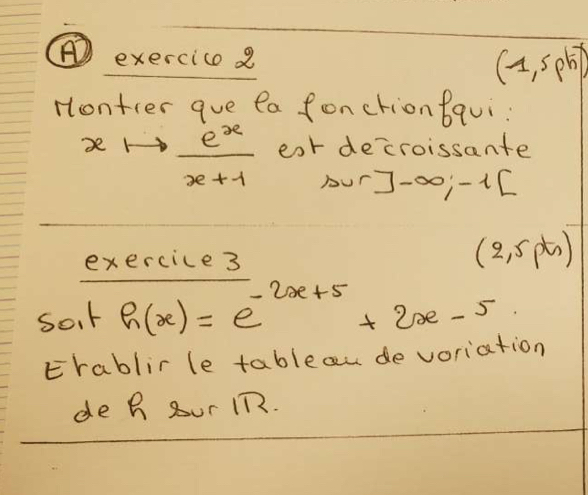 A exercice 2 (1,5 pts)
Montrer que la fonction f qui :
x ↦ e^x / (x+1) est décroissante
sur ]-∞;-1[
exercice 3 (2,5 pts)
Soit h(x) = e^(-2x+5) + 2x - 5.
Etablir le tableau de variation
de h sur IR.